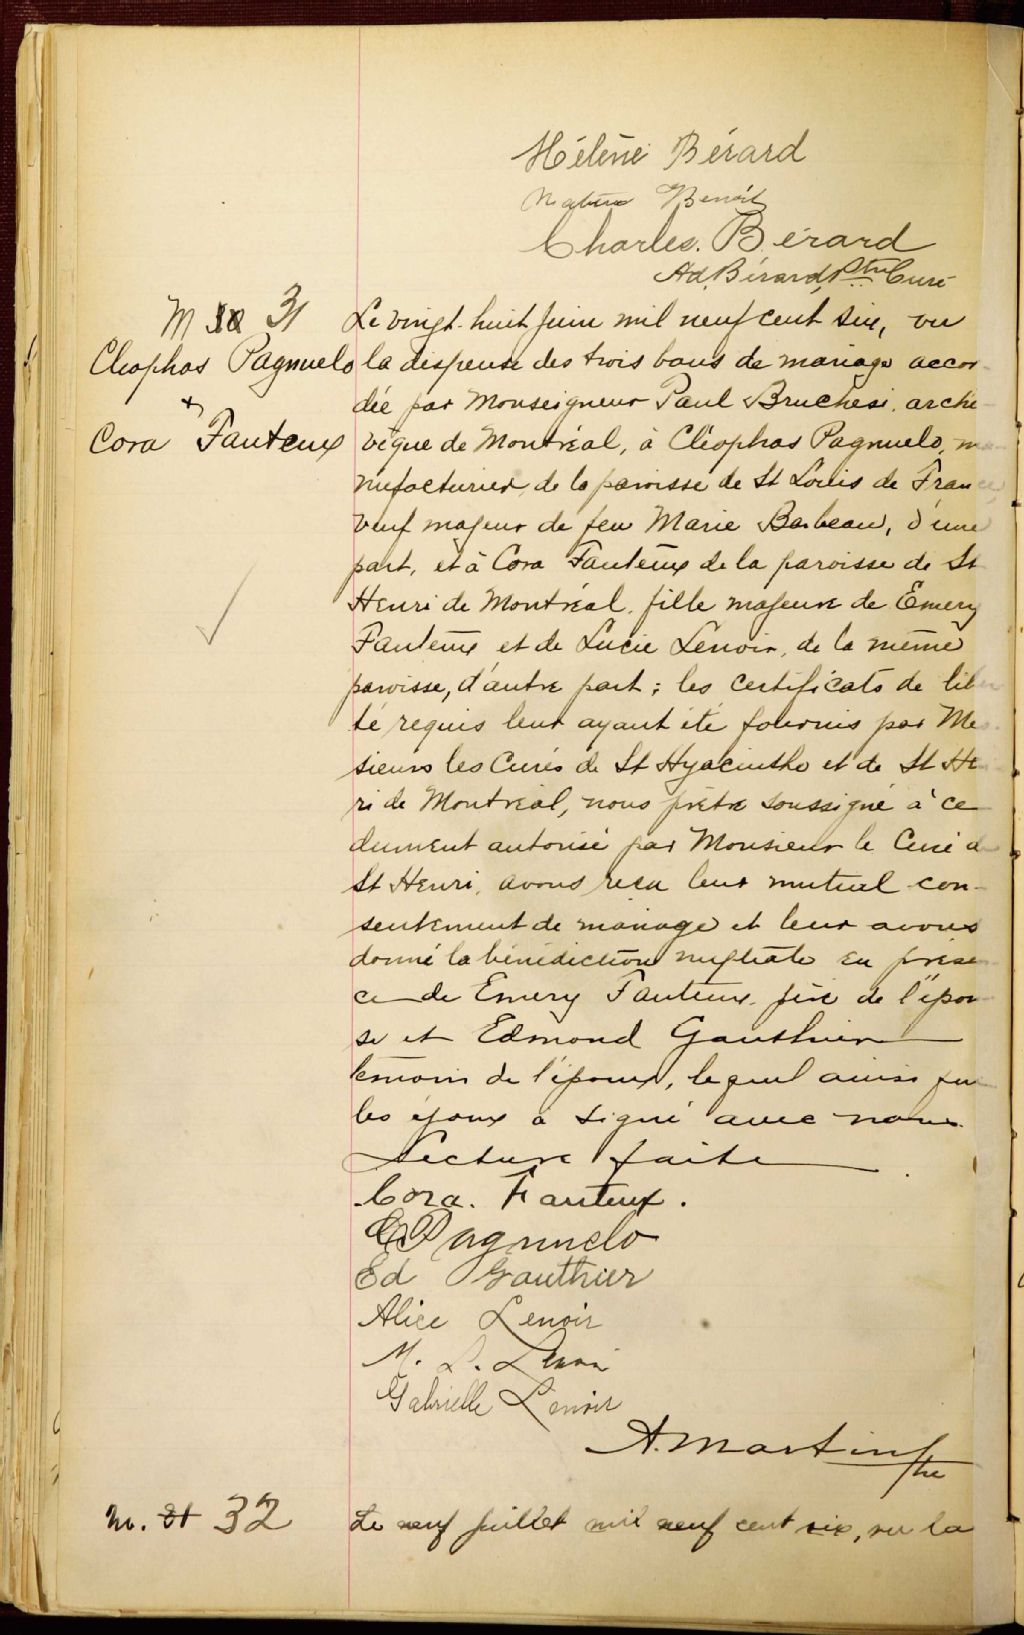 Hélène Bérard
Benoit
Charles Bérard
Ad. Bérard, Ptre Curé
M 31
Cleophas Pagnuelo
+
Cora Fauteux
Le vingt-huit juin mil neuf cent six, vu
la dispense des trois bans de mariage accor-
dée par Monseigneur Paul Bruchesi, arche-
vêque de Montréal, à Cléophas Pagnuelo, ma-
nufacturier, de la paroisse de St Louis de France,
veuf majeur de feu Marie Barbeau, d'une
part, et à Cora Fauteux de la paroisse de St
Henri de Montréal, fille majeure de Emery
Fauteux et de Lucie Lenoir, de la même
paroisse, d'autre part; les certificats de liber-
té requis leur ayant été fournis par Mes-
sieurs les Curés de St Hyacinthe et de St Hen-
ri de Montréal, nous prêtre soussigné à ce
dument autorisé par Monsieur le Curé de
St Henri, avons reçu leur mutuel con-
sentement de mariage et leur avons
donné la bénédiction nuptiale en présen-
ce de Emery Fauteux, père de l'épou-
se et Edmond Gauthier
témoin de l'époux, lequel ainsi que
les époux a signé avec nous.
Lecture faite
Cora. Fauteux.
C Pagnuelo
Ed Gauthier
Alice Lenoir
M. L. Lenoir
Gabrielle Lenoir
A. Martin ptre
M. 31 32
Le neuf juillet mil neuf cent six, vu la